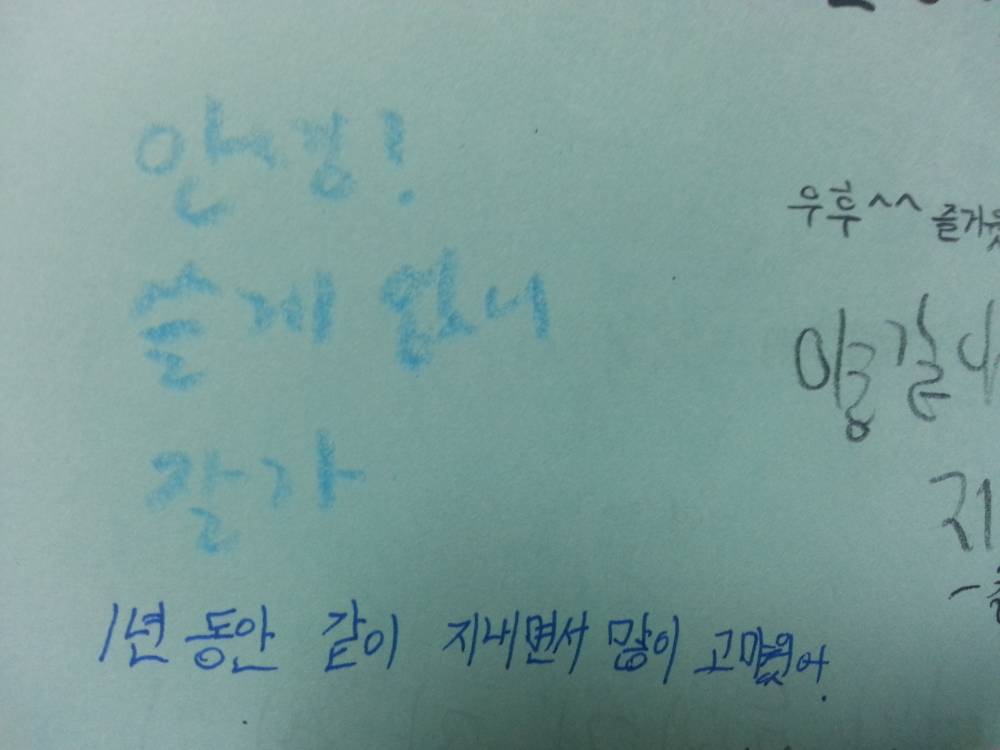 안녕!
쓸게 없니
잘가
1년 동안 같이 지내면서 많이 고마웠어.
우후^^ 즐거웠